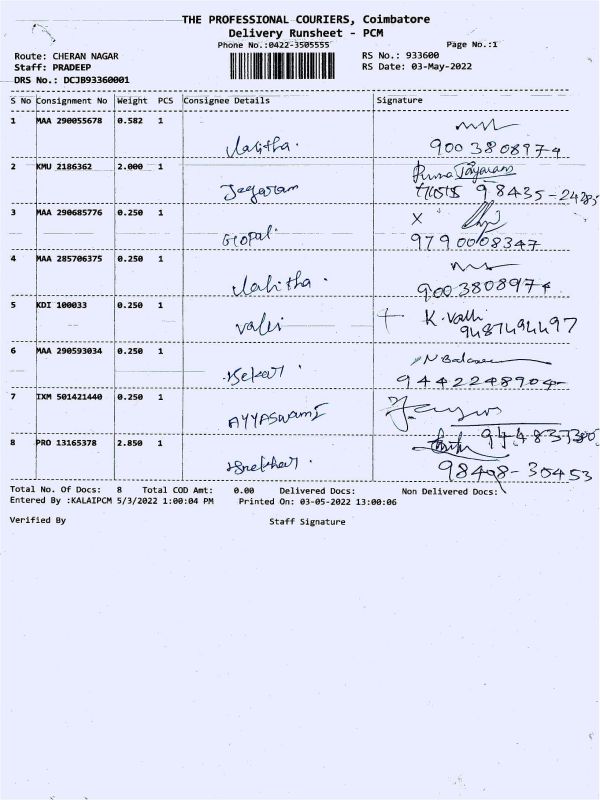 THE PROFESSIONAL COURIERS, Coimbatore
Delivery Runsheet - PCM
Phone No.:0422-3505555 Page No.:1
Route: CHERAN NAGAR RS No.: 933600
Staff: PRADEEP RS Date: 03-May-2022
DRS No.: DCJB93360001
S No Consignment No Weight PCS Consignee Details Signature
1 MAA 290055678 0.582 1
Lalitha. 9003808974
2 KMU 2186362 2.000 1
Jayaram 98435-24285
3 MAA 290685776 0.250 1 X
Gopal. 9790008347
4 MAA 285706375 0.250 1
Lalitha. 9003808974
5 KDI 100033 0.250 1 K. Valli
Valli 9487494497
6 MAA 290593034 0.250 1
Sekar. 9442248904
7 IXM 501421440 0.250 1
AYYASWAMI
8 PRO 13165378 2.850 1
98498-30453
Total No. Of Docs: 8 Total COD Amt: 0.00 Delivered Docs: Non Delivered Docs:
Entered By :KALAIPCM 5/3/2022 1:00:04 PM Printed On: 03-05-2022 13:00:06
Verified By Staff Signature